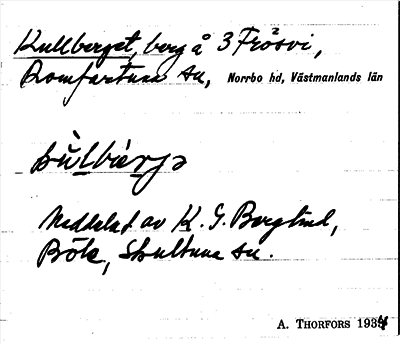 Kullberget, berg å 3 Frösvi,
Romfartuna sn, Norrbo hd, Västmanlands län
Meddelat av K. G. Berglind,
Böle, Skultuna sn.
A. THORFORS 1934